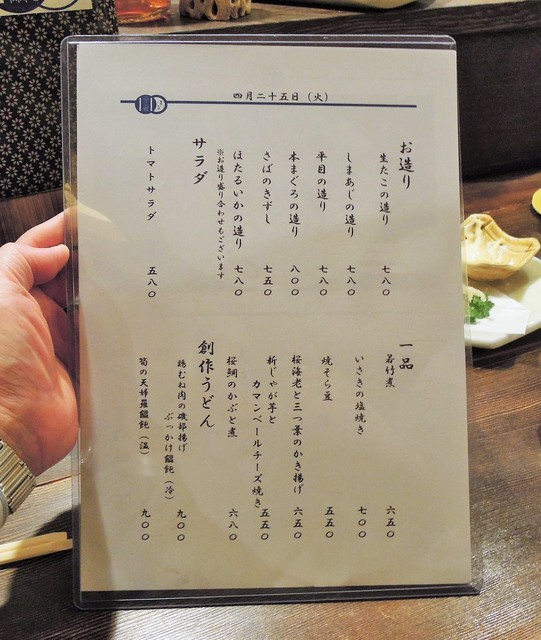 四月二十五日（火）
お造り
生たこの造り 七八〇
しまあじの造り 七八〇
平目の造り 七八〇
本まぐろの造り 八〇〇
さばのきずし 七五〇
ほたるいかの造り 七八〇
※お造り盛り合わせもございます
サラダ
トマトサラダ 五八〇
一品
若竹煮 六五〇
いさきの塩焼き 七〇〇
焼そら豆 五五〇
桜海老と三つ葉のかき揚げ 六五〇
新じゃが芋と
カマンベールチーズ焼き 五五〇
桜鯛のかぶと煮 六八〇
創作うどん
鶏むね肉の磯部揚げ
ぶっかけ饂飩（冷） 九〇〇
筍の天婦羅饂飩（温） 九〇〇